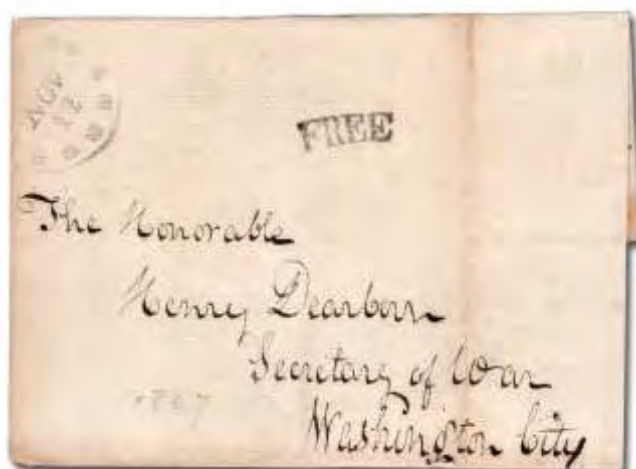 12
FREE
The Honorable
Henry Dearborn
Secretary of War
Washington City